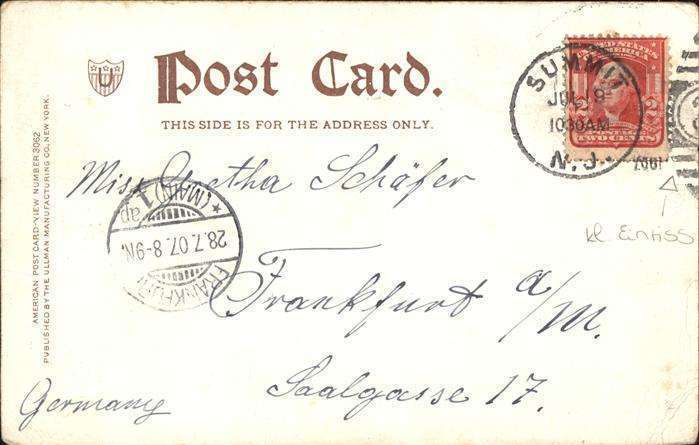 U
Post Card.
THIS SIDE IS FOR THE ADDRESS ONLY.
AMERICAN POST CARD-VIEW NUMBER 3062
PUBLISHED BY THE ULLMAN MANUFACTURING CO, NEW YORK.
UNITED STATES
OF AMERICA
2 2
TWO CENTS
SUMMIT
JUL 18
1030AM
N.J.
1907
Miss Gretha Schäfer
FRANKFURT
28.7.07.8-9N.
*(MAIN)1 ap
Frankfurt a/M.
Saalgasse 17.
Germany